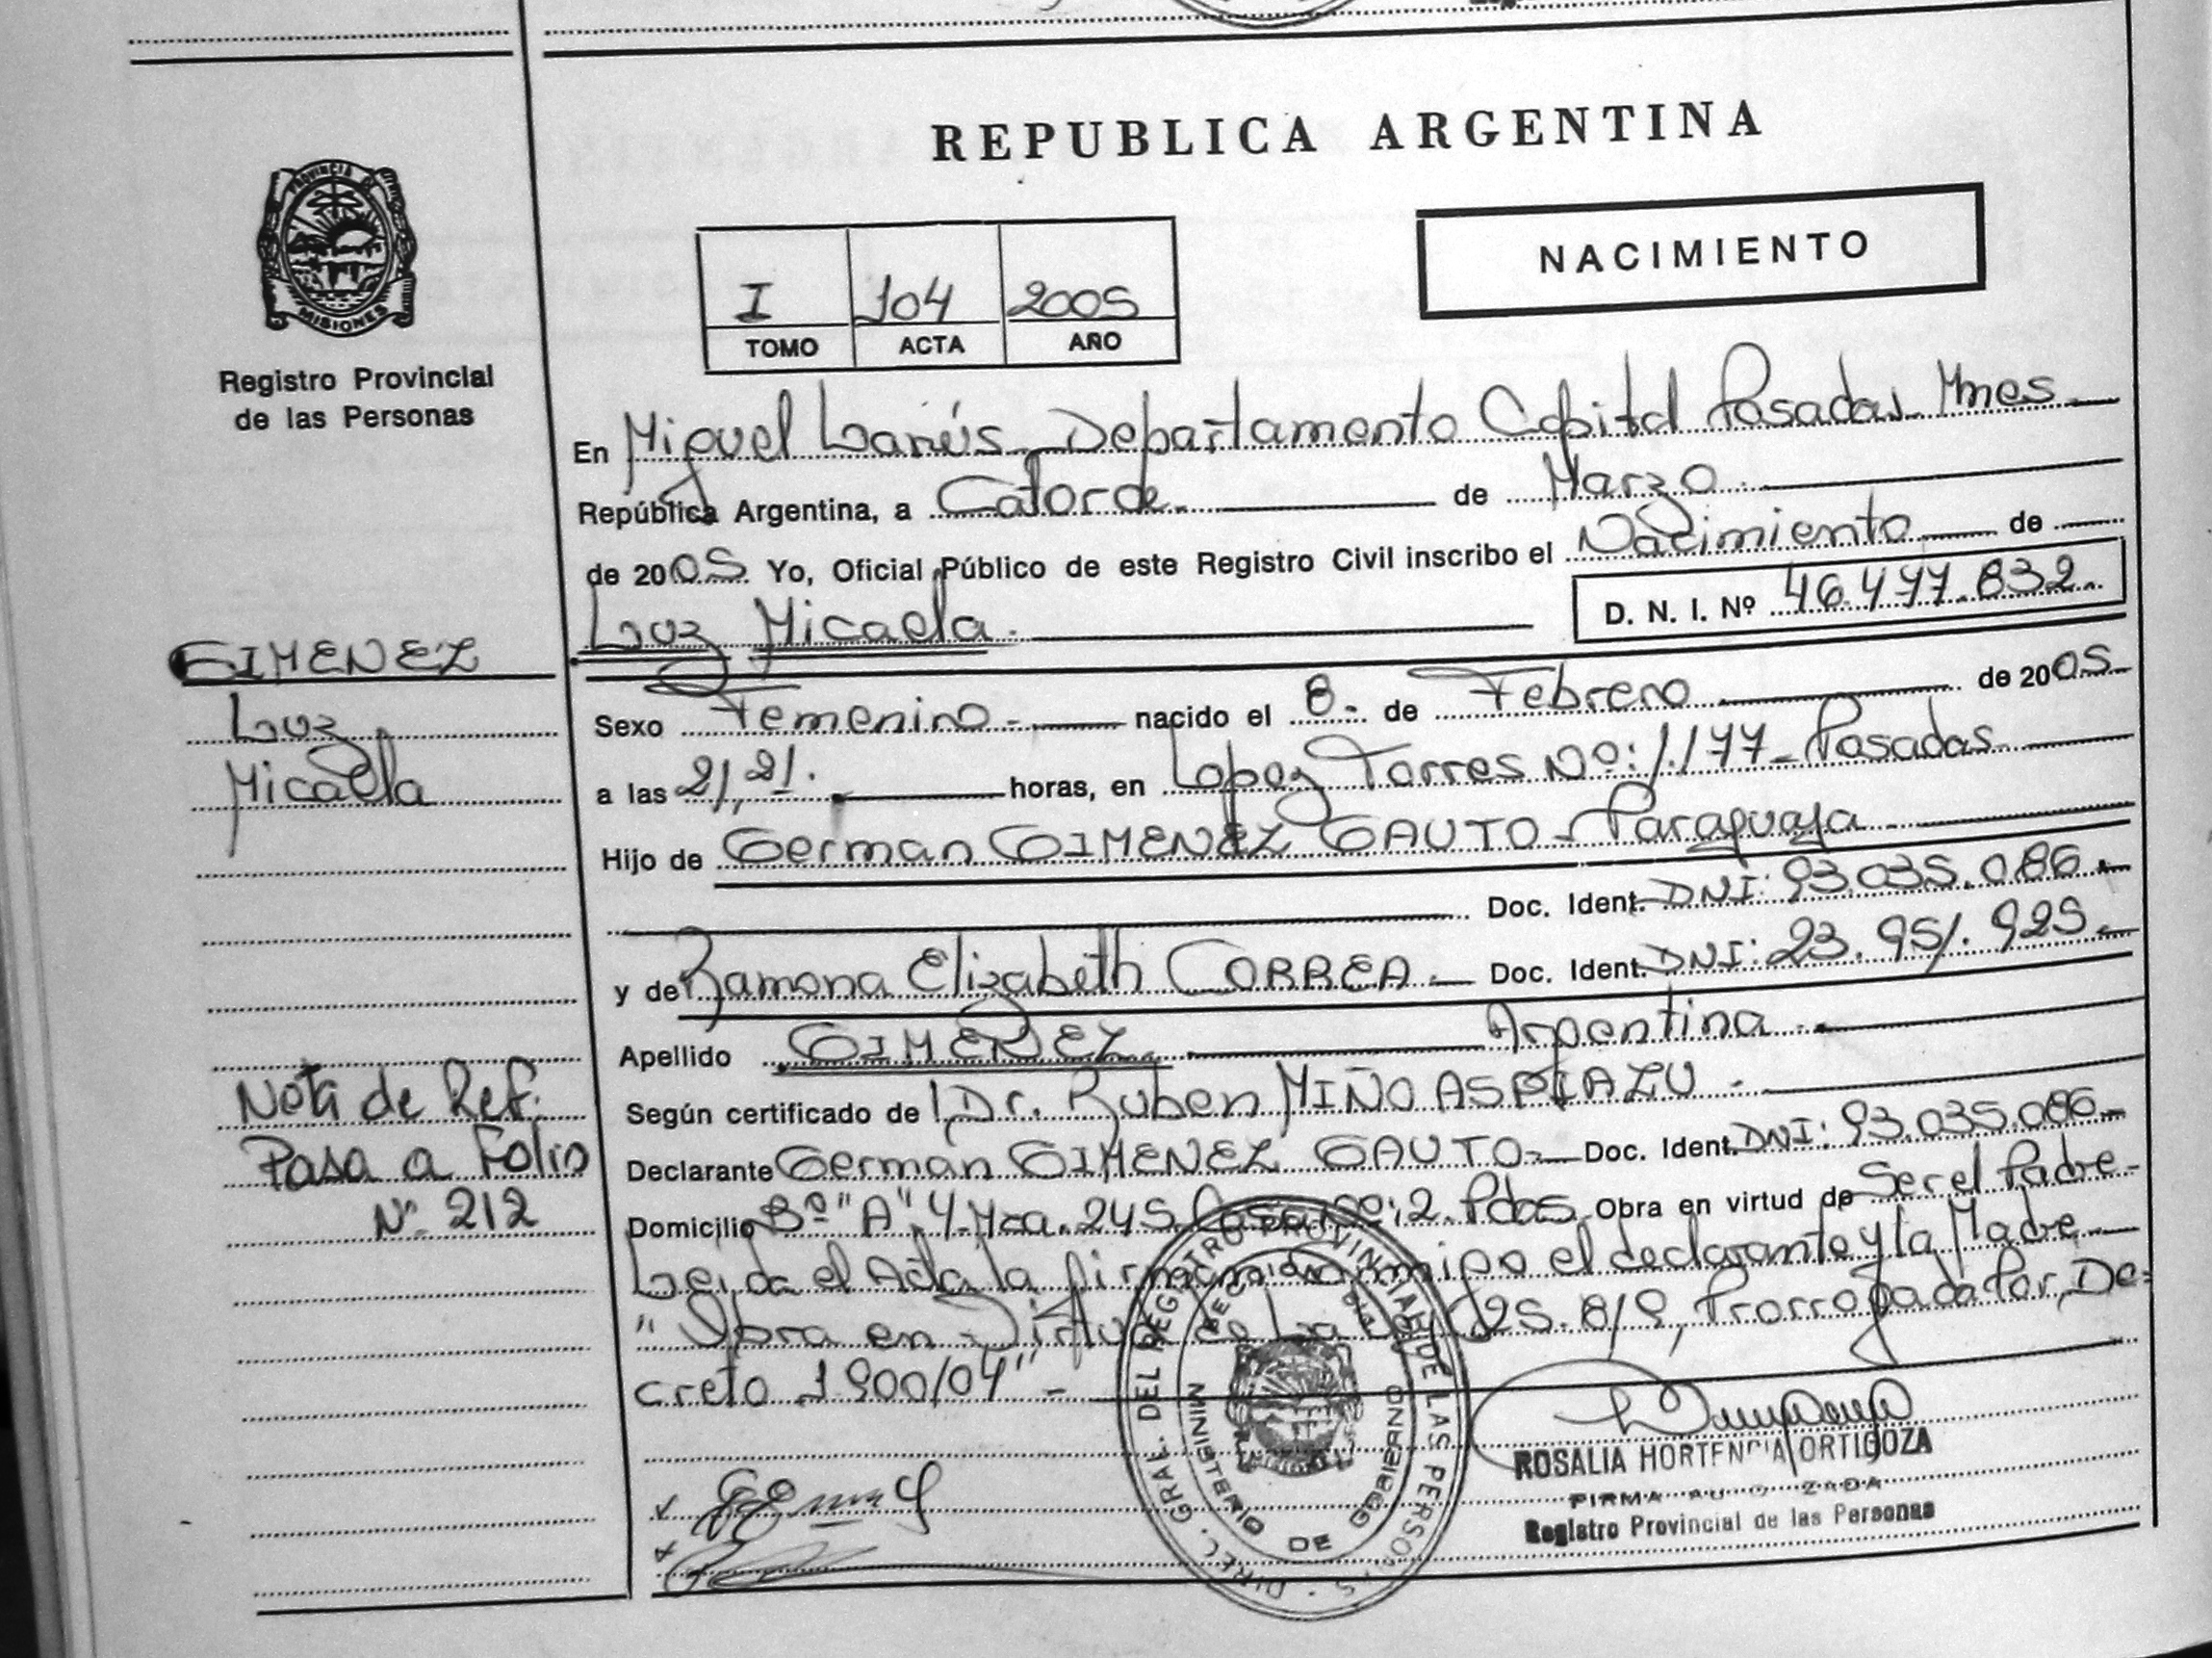 REPUBLICA ARGENTINA
NACIMIENTO
I 104 2005
TOMO ACTA AÑO
PROVINCIA DE MISIONES
Registro Provincial
de las Personas
En Miguel Lanús Departamento Capital Posadas Mnes
República Argentina, a Catorce de Marzo
de 2005 Yo, Oficial Público de este Registro Civil inscribo el Nacimiento de
Luz Micaela. D. N. I. Nº 46.477.832
GIMENEZ
Luz
Micaela
Sexo Femenino nacido el 8 de Febrero de 2005
a las 21,21. horas, en Lopez Torres Nº: 1.177 - Posadas
Hijo de German GIMENEZ GAUTO - Paraguaya
Doc. Ident. DNI: 93.035.086.
y de Ramona Elizabeth CORREA. Doc. Ident. DNI: 23.951.925
Apellido GIMENEZ Argentina
Según certificado de Dr. Ruben MIÑO ASPIAZU
Declarante German GIMENEZ GAUTO Doc. Ident. DNI: 93.035.086
Domicilio Bº "A" 4 Mza. 245 Casa Nº: 2. Pdas Obra en virtud de Ser el Padre
Leida el Acta la firman conmigo el declarante y la Madre
"Obra en Virtud de La Ley 25.819, Prorrogada Por De-
creto 1900/04" -
Nota de Ref.
Pasa a Folio
Nº 212
DIREC. GRAL. DEL REGISTRO PROVINCIAL DE LAS PERSONAS
MINISTERIO DE GOBIERNO
ROSALIA HORTENCIA ORTIGOZA
FIRMA AUTORIZADA
Registro Provincial de las Personas